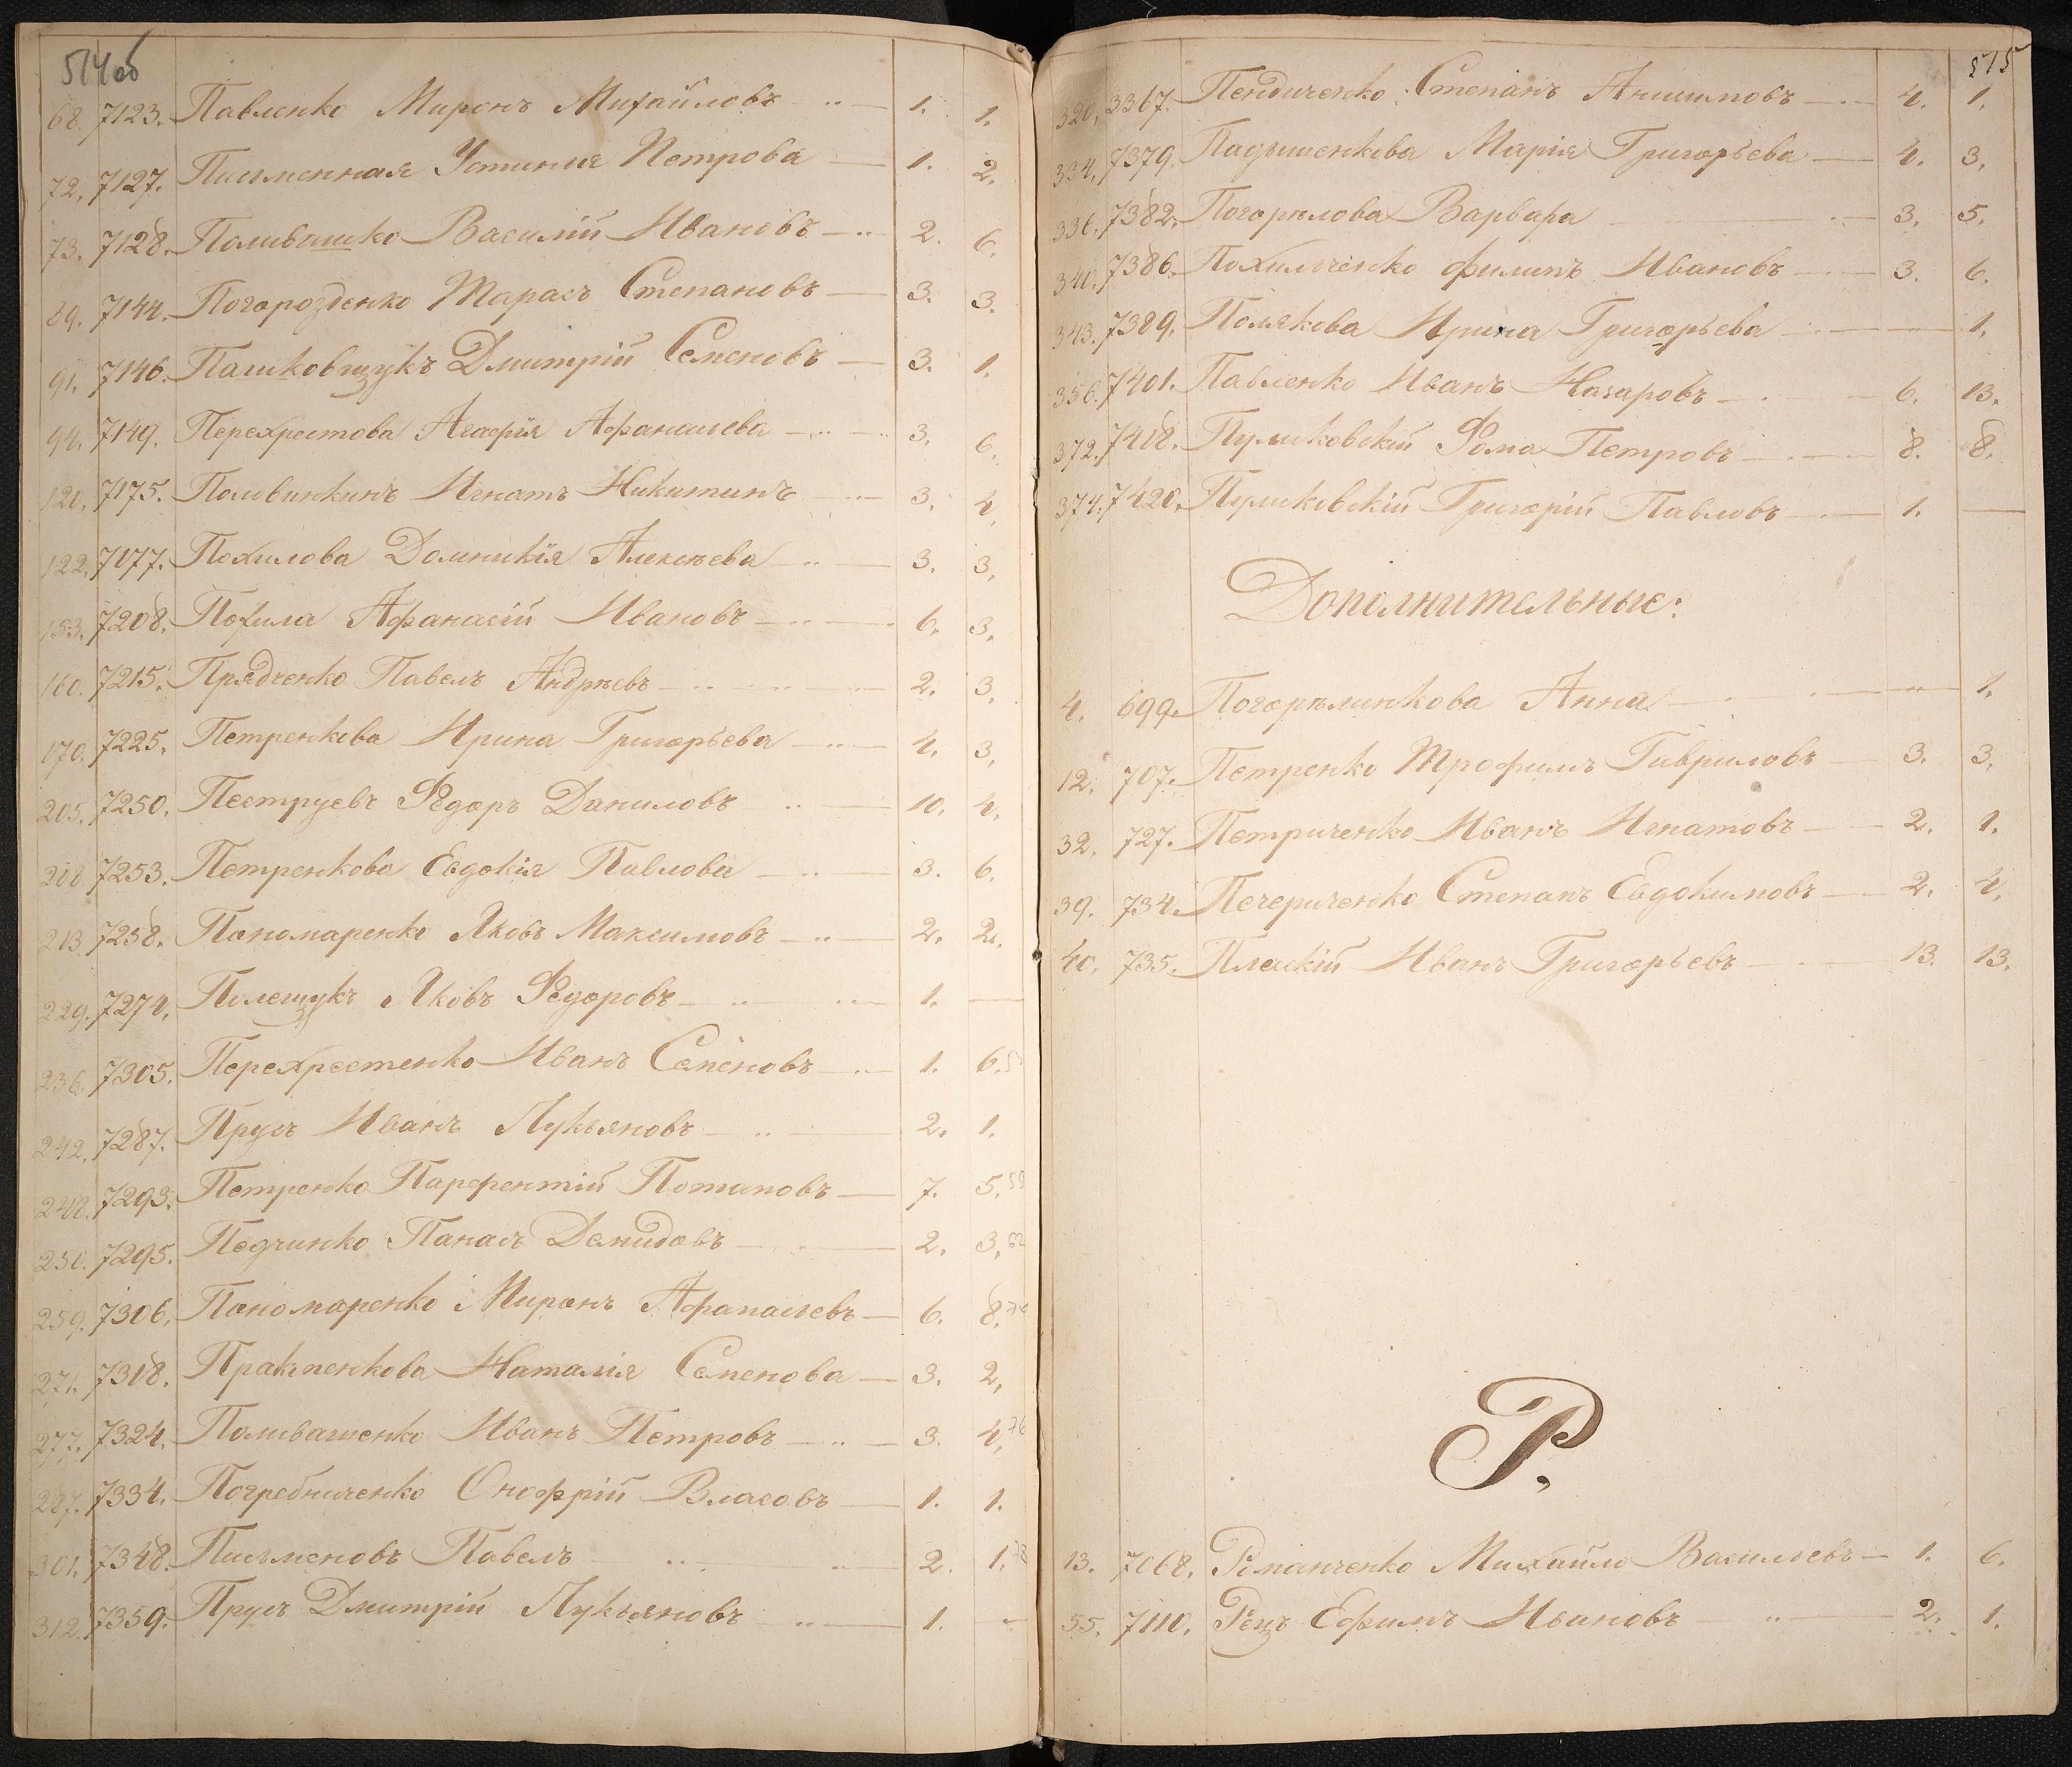 514об
68. 7123. Павленко Миронъ Михайловъ 1. 1.
72. 7127. Письменная Устинія Петрова 1. 2.
73. 7128. Поливашко Василій Ивановъ 2. 6.
89. 7144. Погорозденко Тарасъ Степановъ 3. 3.
91. 7146. Пашковщукъ Дмитрій Семеновъ 3. 1.
94. 7149. Перехрестова Агафія Афанасьева 3. 6.
120. 7175. Половинкинъ Игнатъ Никитинъ 3. 4.
122. 7177. Похилова Домникія Алексѣева 3. 3.
153. 7208. Похила Афанасій Ивановъ 6. 3.
160. 7215. Прядченко Павелъ Андрѣевъ 2. 3.
170. 7225. Петренкова Ирина Григорьева 4. 3.
205. 7250. Пеструевъ Ѳедоръ Даниловъ 10. 4.
208. 7253. Петренкова Евдокія Павлова 3. 6.
213. 7258. Пономаренко Яковъ Максимовъ 2. 2.
229. 7274. Полещукъ Яковъ Ѳедоровъ 1. —
236. 7305. Перехрестенко Иванъ Семёновъ 1. 6.
242. 7287. Прусъ Иванъ Лукьяновъ 2. 1.
248. 7293. Петренко Парфентій Потаповъ 7. 5.
250. 7295. Педчинко Панасъ Демидовъ 2. 3.
259. 7306. Пономаренко Миронъ Афанасьевъ 6. 8.
271. 7318. Наталія Семенова 3. 2.
277. 7324. Поливашенко Иванъ Петровъ 3. 4.
287. 7334. Погребниченко Онофрій Власовъ 1. 1.
301. 7348. Письменовъ Павелъ 2. 1.
312. 7359. Прусъ Дмитрій Лукьяновъ 1. —
515
320. 3367. Пендиченко Степанъ Анисимовъ 4. 1.
334. 7379. Падышенкова Марія Григорьева 4. 3.
336. 7382. Погорѣлова Варвара 3. 5.
340. 7386. Похильченко Филипъ Ивановъ 3. 6.
343. 7389. Полякова Ирина Григорьева — 1.
356. 7401. Павленко Иванъ Назаровъ 6. 13.
372. 7418. Пуликовскій Ѳома Петровъ 8. 8.
374. 7420. Пуликовскій Григорій Павловъ 1. —
Дополнительные:
4. 699. Погорѣлинкова Анна — 1.
12. 707. Петренко Трофимъ Гавриловъ 3. 3.
32. 727. Петриченко Иванъ Игнатовъ 2. 1.
39. 734. Печериченко Степанъ Евдокимовъ 2. 4.
40. 735. Плескій Иванъ Григорьевъ 13. 13.
Р.
13. 7068. Романченко Михайло Васильевъ 1. 6.
55. 7110. Рецъ Ефимъ Ивановъ 2. 1.